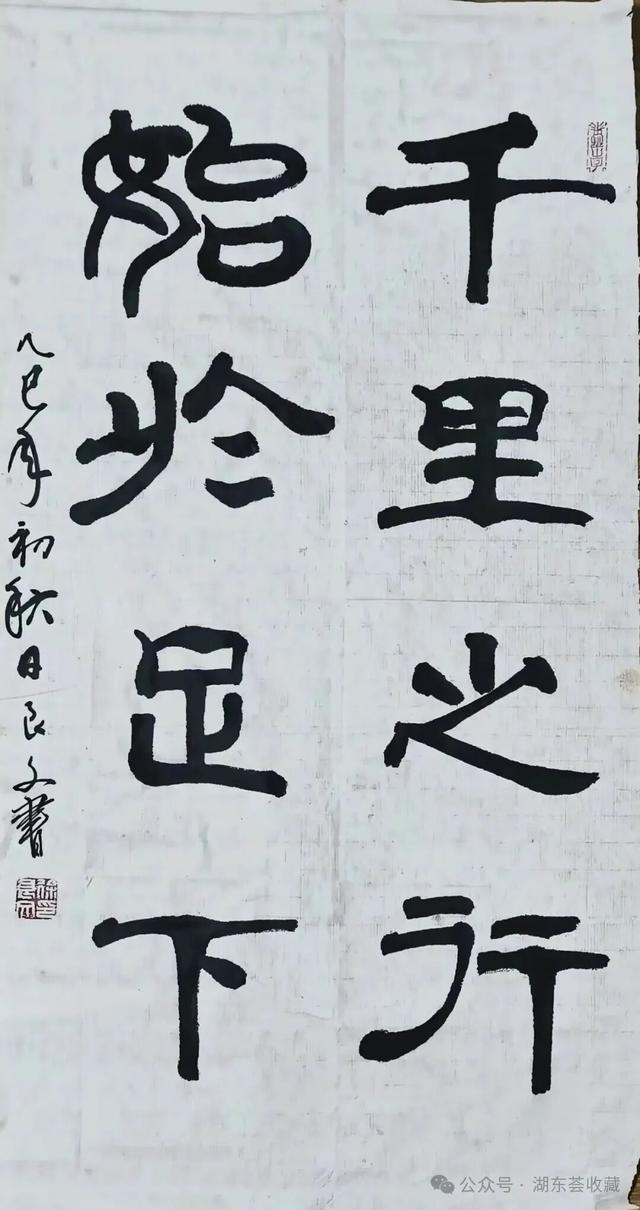 千里之行
始於足下
乙巳年初秋日良文書
公众号·湖东荟收藏